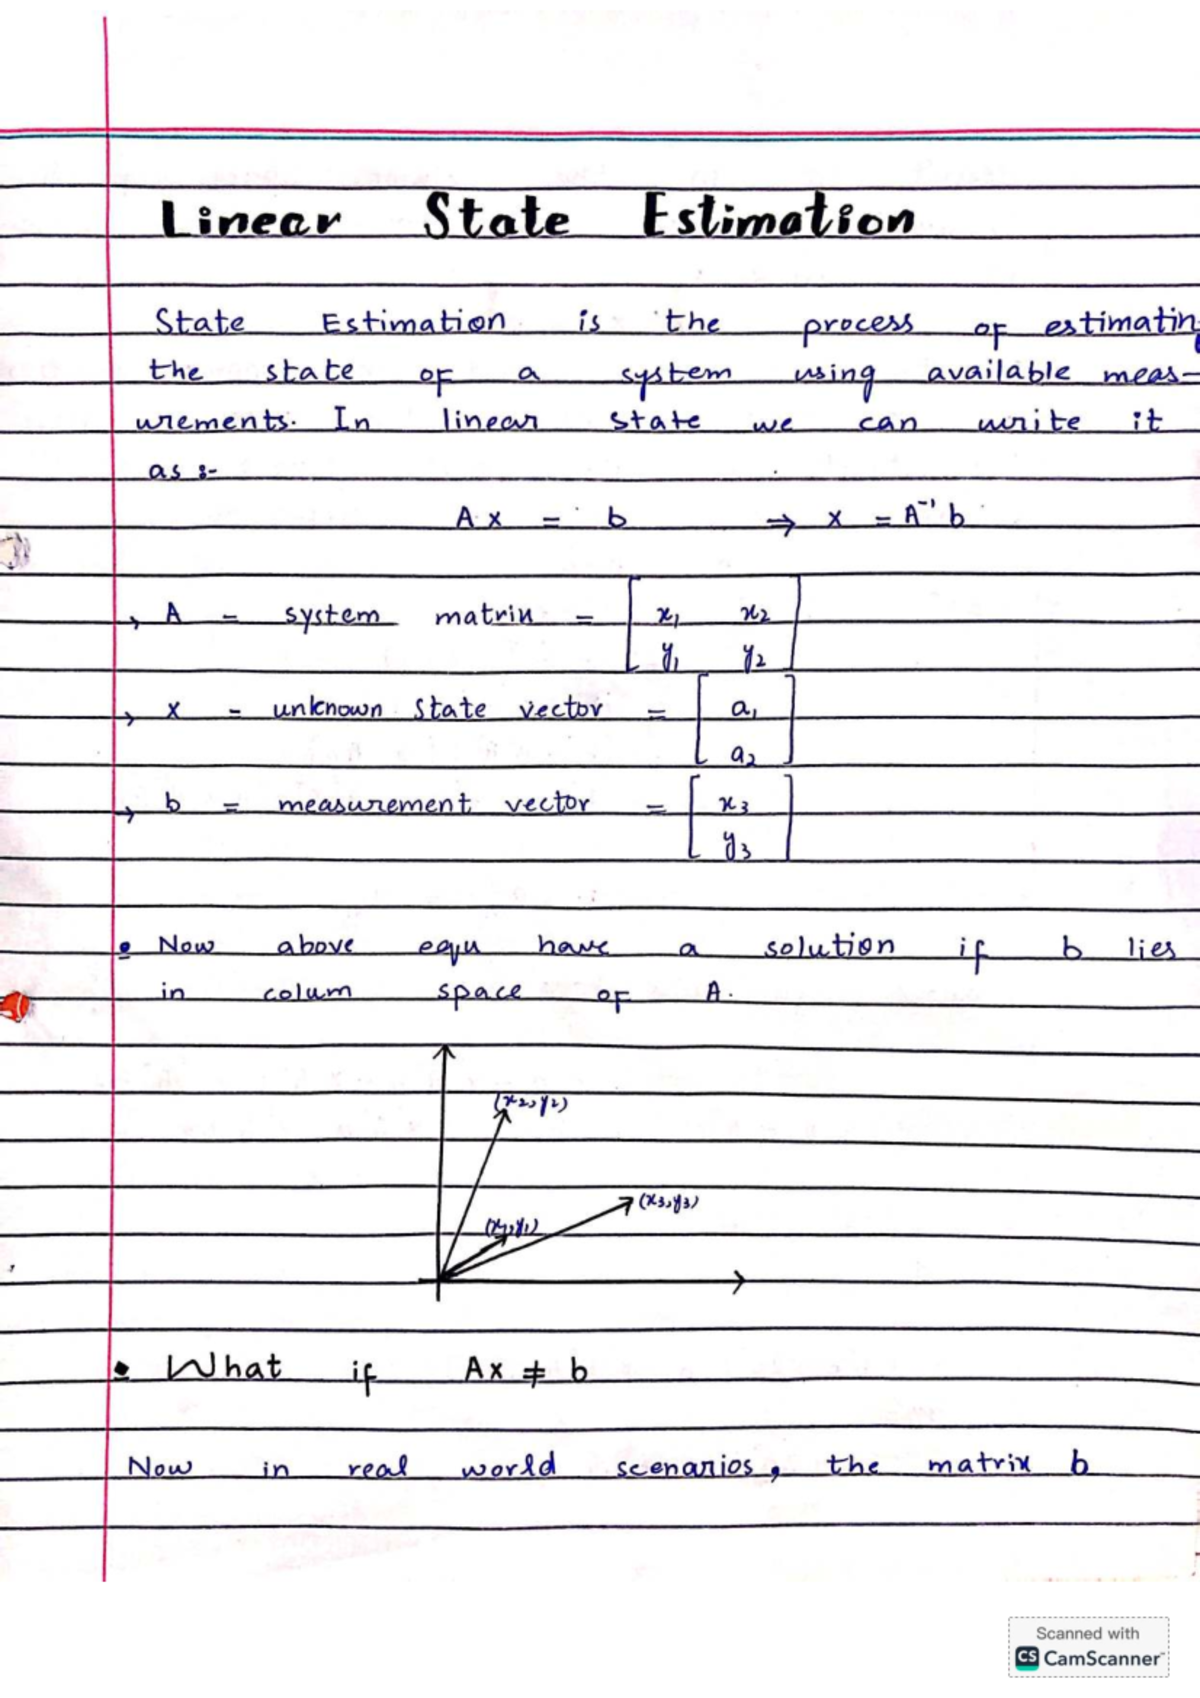 Linear State Estimation
State Estimation is the process of estimating
the state of a system using available meas-
urements. In linear state we can write it
as :-
Ax = b ⇒ x = A⁻¹ b
→ A - system matrix = [ x₁ x₂
y₁ y₂ ]
→ x - unknown state vector = [ a₁
a₂ ]
→ b = measurement vector = [ x₃
y₃ ]
• Now above equ have a solution if b lies
in colum space of A.
(x₂,y₂)
(x₃,y₃)
(x₁,y₁)
• What if Ax ≠ b
Now in real world scenarios, the matrix b
Scanned with
CS CamScanner